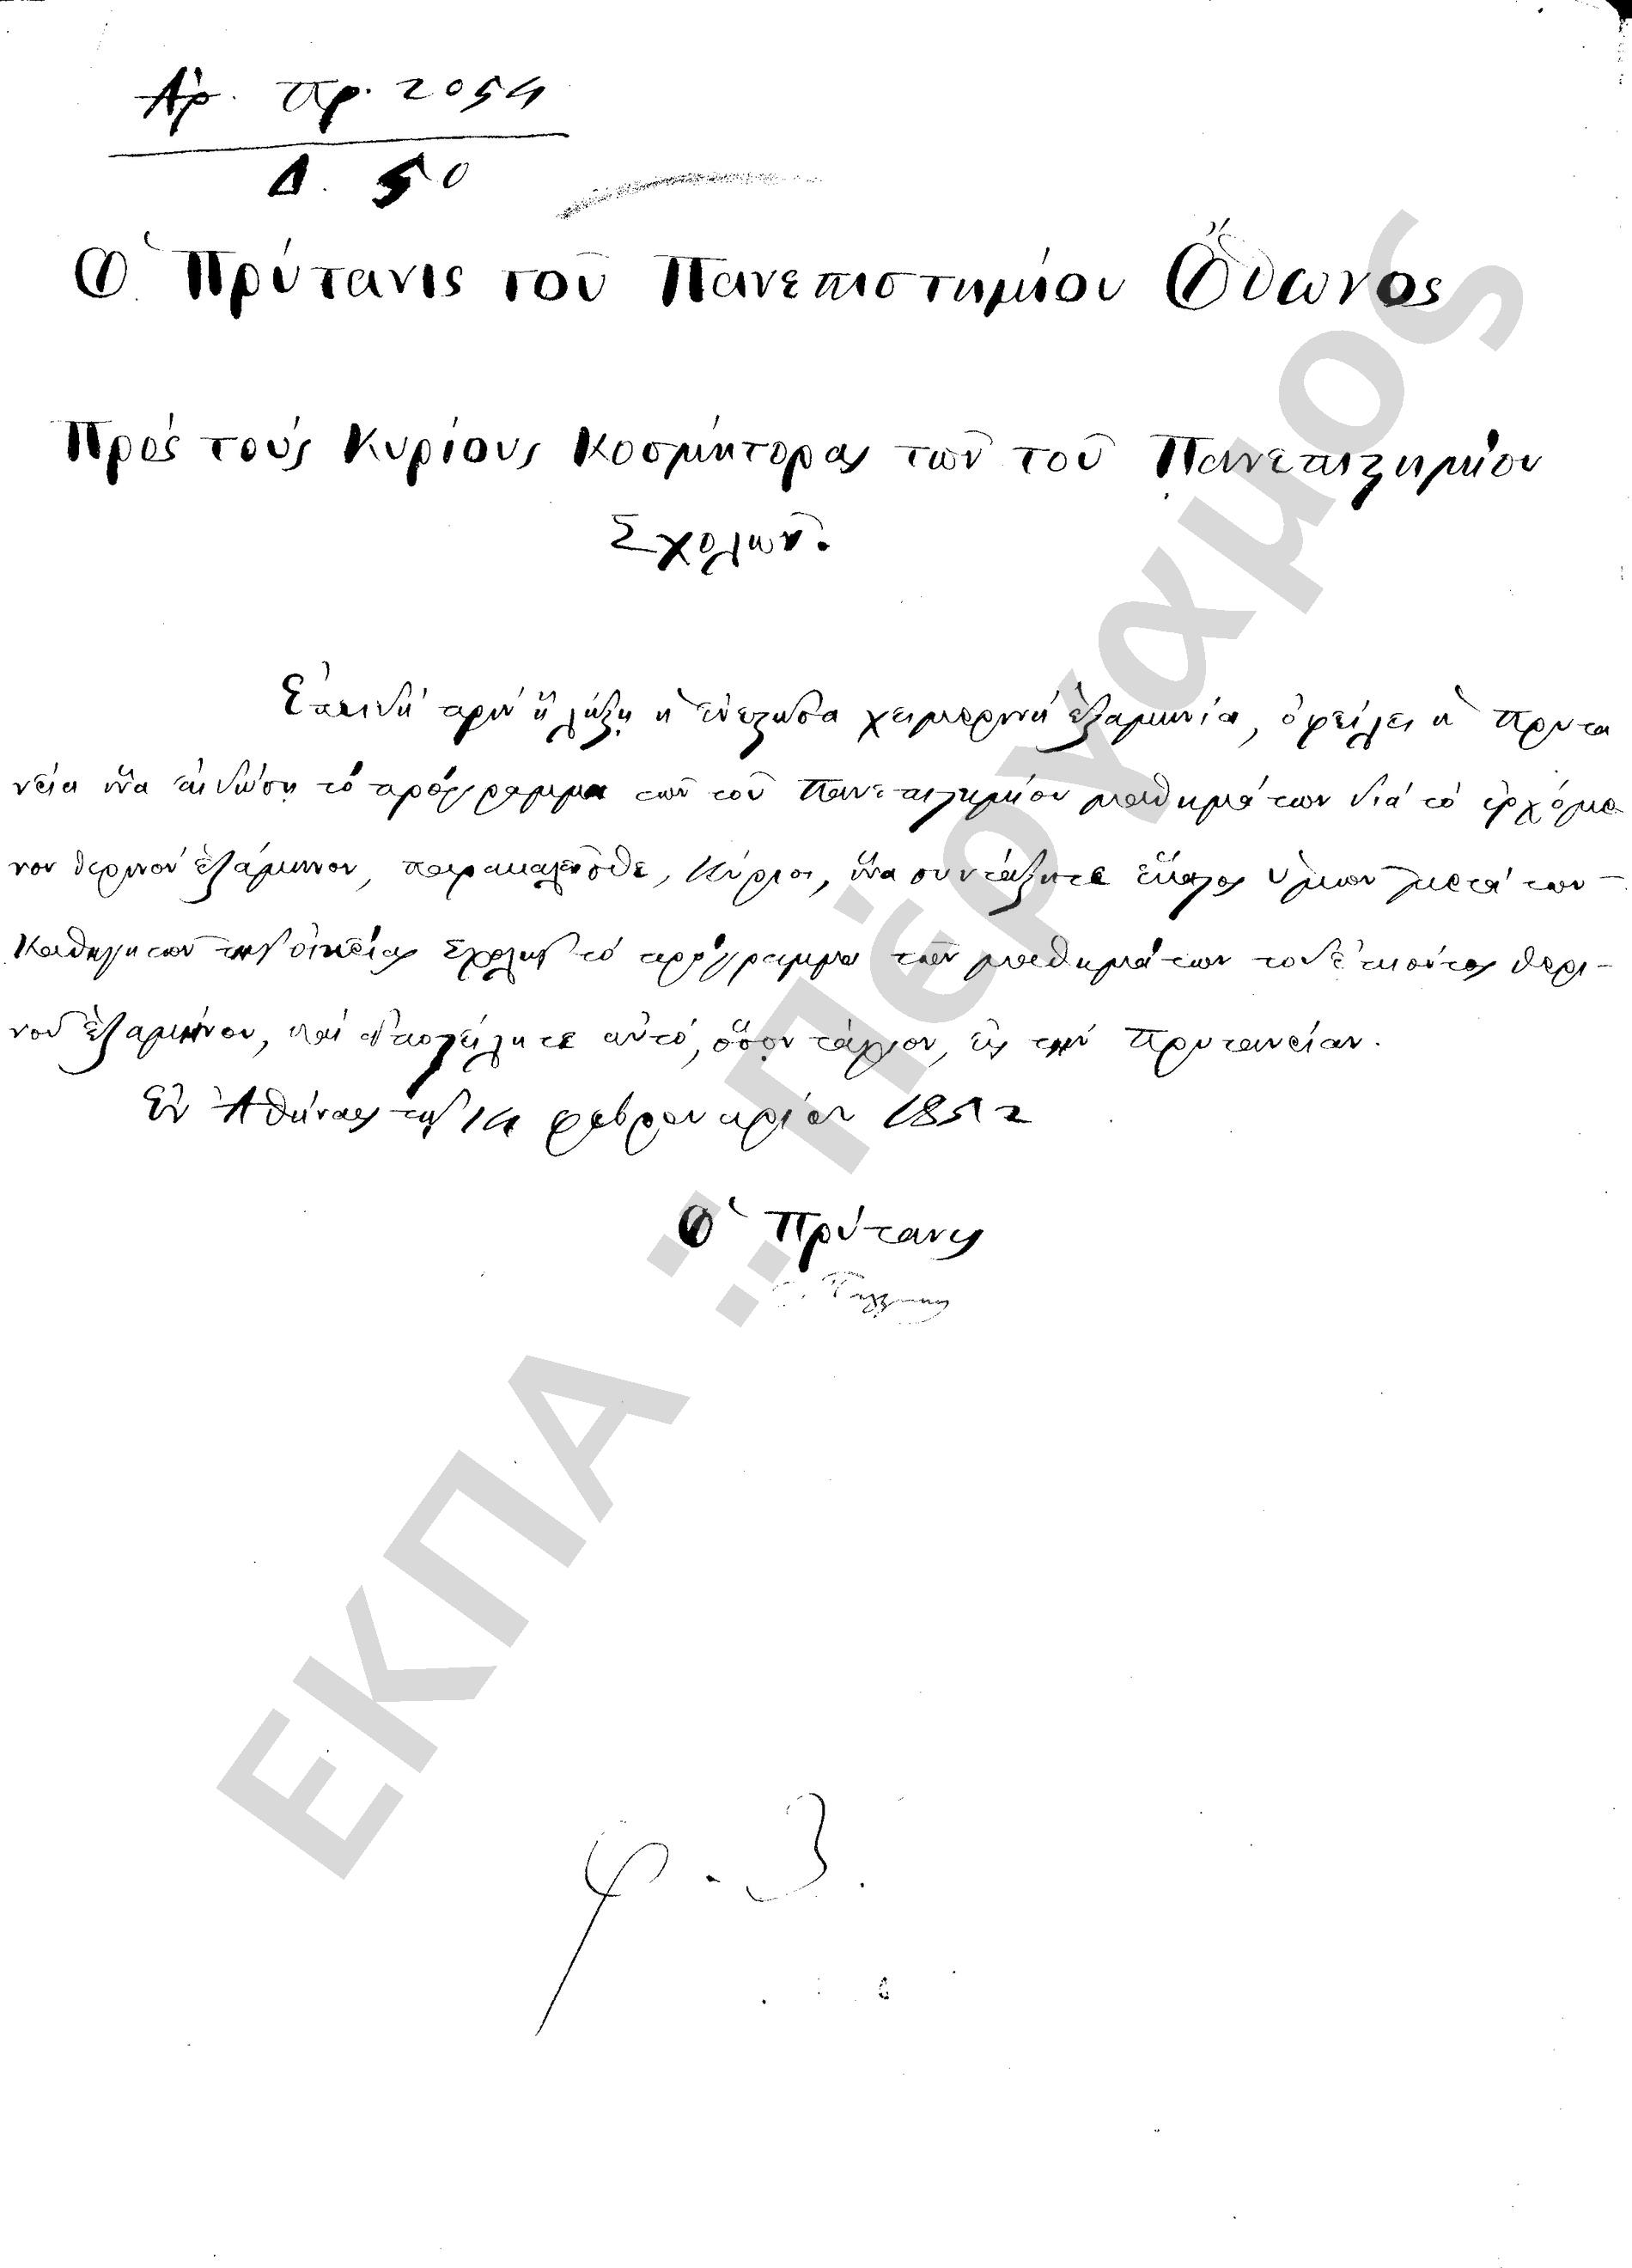 Ἀρ. πρ. 2054
Δ. 50
Ὁ Πρύτανις τοῦ Πανεπιστημίου Ὄθωνος
Πρὸς τοὺς Κυρίους Κοσμήτορας τῶν τοῦ Πανεπιστημίου
Σχολῶν.
Ἐπειδὴ πρὶν ἢ λήξῃ ἡ ἐνεστῶσα χειμερινὴ ἑξαμηνία, ὀφείλει ἡ Πρυτα
νεία ἵνα ἐκδώσῃ τὸ πρόγραμμα τῶν τοῦ Πανεπιστημίου μαθημάτων διὰ τὸ ἐρχόμε
νον θερινὸν ἑξάμηνον, παρακαλεῖσθε, Κύριοι, ἵνα συντάξητε ἕκαστος ὑμῶν μετὰ τῶν
Καθηγητῶν τῆς οἰκείας Σχολῆς τὸ πρόγραμμα τῶν μαθημάτων τοῦ ἐπιόντος θερι-
νοῦ ἑξαμήνου, καὶ ἀποστείλητε αὐτό, ὅσον τάχιον, εἰς τὴν Πρυτανείαν.
Ἐν Ἀθήναις τῇ 14 φεβρουαρίου 1852
Ὁ Πρύτανις
φ. 3.
ΕΚΠΑ :: Πέργαμος